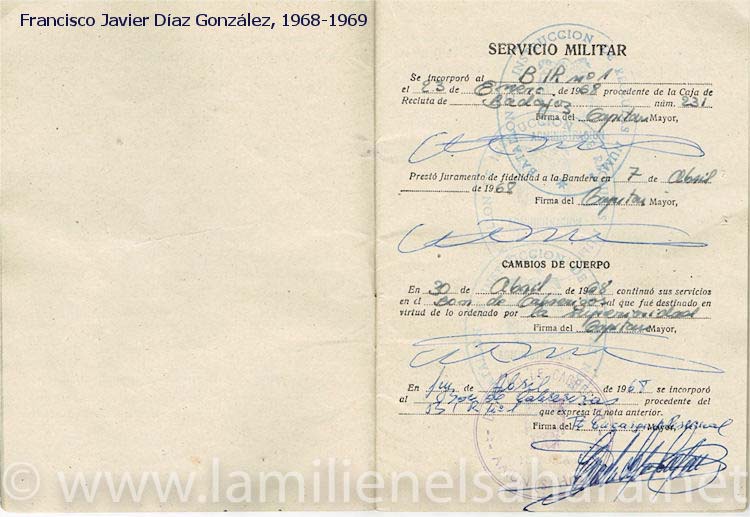 Francisco Javier Díaz González, 1968-1969
SERVICIO MILITAR
Se incorporó al BIR nº 1
el 23 de Enero de 1968 procedente de la Caja de
Recluta de Badajoz núm. 231
Firma del Capitan Mayor,
Prestó Juramento de fidelidad a la Bandera en 7 de Abril
de 1968
Firma del Capitan Mayor,
CAMBIOS DE CUERPO
En 30 de Abril de 1968 continuó sus servicios
en el Bon de Cabrerizas al que fué destinado en
virtud de lo ordenado por la superioridad
Firma del Capitan Mayor,
En fin Abril de 1968 se incorporó
al Bon de Cabrerizas procedente del
BIR nº 1 que expresa la nota anterior.
Firma del Mayor,
© www.lamilienelsahara.net